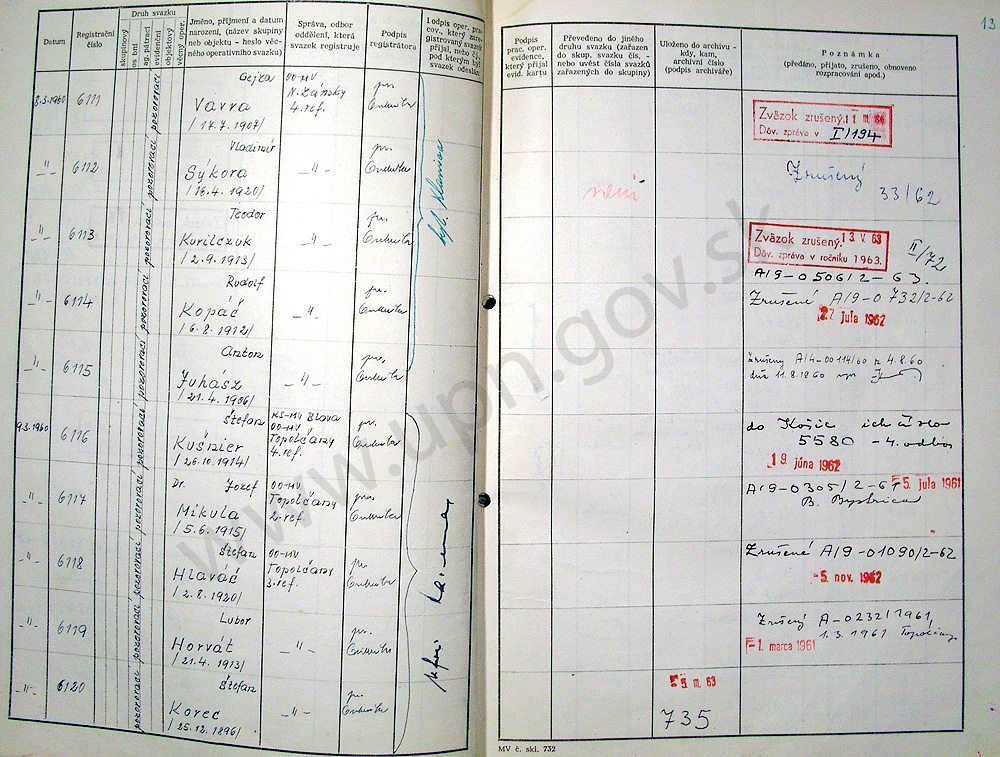 13
Datum
Registrační
číslo
Druh svazku
skupinový
os bní
ag. pátrací
evidenční
objektový
věcný oper.
Jméno, příjmení a datum
narození, (název skupiny
neb objektu - heslo věc-
ného operativního svazku)
Správa, odbor
oddělení, která
svazek registruje
Podpis
registrátora
Podpis oper. pra-
cov., který zare-
gistrovaný svazek
přijal, nebo čj.,
pod kterým byl
svazek odeslán
Podpis
prac. oper.
evidence,
který přijal
evid. kartu
Převedeno do jiného
druhu svazku (zařazen
do skup. svazku čís. -
nebo uvést čísla svazků
zařazených do skupiny)
Uloženo do archivu -
kdy, kam,
archivní číslo
(podpis archiváře)
Poznámka
(předáno, přijato, zrušeno, obnoveno
rozpracování apod.)
8.3.1960 6111 pozorovací Gejza
Vavra
/17.7.1907/
OO-MV
N. Zámky
4. ref.
Zväzok zrušený
Dôv. zpráva v I/194
-"- 6112 pozorovací Vladimír
Sýkora
/16.4.1920/
-"-
Zrušený
33/62
-"- 6113 pozorovací Teodor
Kurilczuk
/2.9.1913/
-"-
Zväzok zrušený 13 V. 63
Dôv. zpráva v ročníku 1963.
II/72
A/9-0506/2-63.
-"- 6114 pozorovací Rudolf
Kopáč
/6.8.1912/
-"-
Zrušené A/9-0732/2-62
27 júla 1962
-"- 6115 pozorovací Anton
Juhász
/21.4.1906/
-"-
Zrušený A/4-00114/60 z 4.8.60
dňa 11.8.1960
9.3.1960 6116 pozorovací Štefan
Kušnier
/26.10.1914/
KS-MV Blava
OO-MV
Topolčany
4. ref.
do Košíc ich číslo
5580 - 4. odbor
19. júna 1962
-"- 6117 pozorovací Dr. Jozef
Mikula
/5.6.1915/
OO-MV
Topolčany
2. ref.
5. júla 1961
A/9-0305/2-61
B. Bystrica
-"- 6118 pozorovací Štefan
Hlaváč
/2.8.1920/
OO-MV
Topolčany
3. ref.
Zrušené A/9-01090/2-62
-5. nov. 1962
-"- 6119 pozorovací Lubor
Horvát
/21.4.1913/
-"-
Zrušený A-0232/1961
1.3.1961 Topolčany
-1. marca 1961
-"- 6120 pozorovací Štefan
Korec
/25.12.1896/
-"-
5. III. 63
735
MV č. skl. 732
www.upn.gov.sk